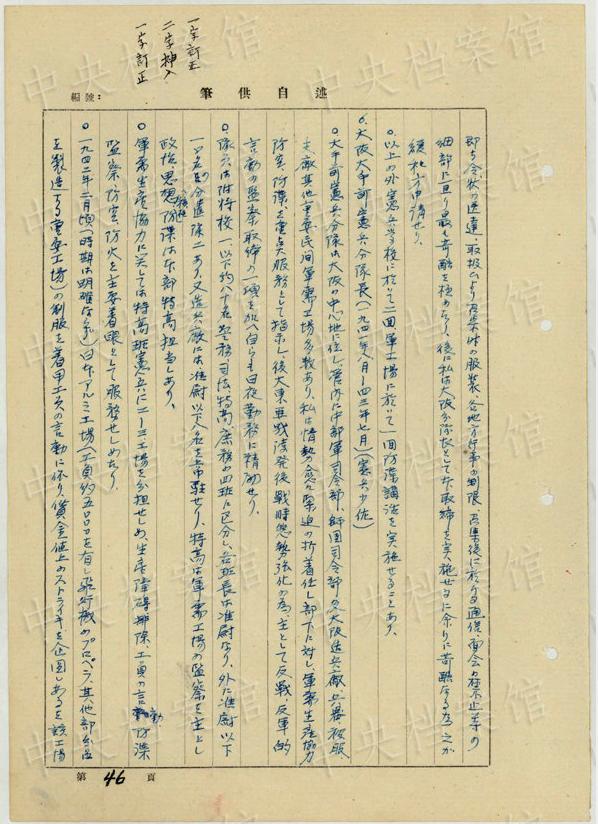 述自供筆
編號：
一字訂正
二字挿入
一字訂正
即ち令状の送達、取扱ひより召集時の服装、各地方行事の制限、召集後に於ける通信、面会の禁止等の
細部に亘り最も苛酷を極めたり、後に私は大阪分隊長として本取締を実施せるに余りに苛酷なる為、之が
緩和方申請せり、
○、以上の外憲兵学校に於いて二回、軍工場に於いて一回防諜講話を実施せることあり、
6、大阪大手前憲兵分隊長（一九四一、八月〜四三年七月）（憲兵少佐）
○大手前憲兵分隊は大阪の中心地に位し管内に中部軍司令部、師団司令部及大阪造兵廠、兵器、被服
支廠其他重要民間軍需工場多数あり、私は情勢の愈々緊迫の折着任し部下に対し、軍需生産協力
防空、防諜を重点服務として指示し後大東亜戦争勃発後戦時態勢強化の為、主として反戦反軍的
言動の監察取締の一項を加へ自らも日夜勤務に精励せり、
○隊員は附将校一、以下約八十名、警務、司法、特高、庶務の四班に区分し各班長は准尉なり、外に准尉以下
一〇名の分遣隊二あり、又造兵廠には准尉以下八名を常駐せり、特高は軍需工場の監察を主とし
政治、思想、防諜は本部特高担当しあり、
○軍需生産協力に関しては特高班憲兵に二ー三工場を分担せしめ、生産障碍排除、工員の言動、防諜
監察、防空、防火を主要着眼として服務せしめたり、
○一九四二年二月頃（時期は明確ならず）日本アルミ工場（工員約五〇〇〇を有し飛行機のプロペラ、其他部分品
を製造する重要工場）の制服を着用工員の言動に依り、賃金値上のストライキを企図しあるを該工場
第 46 頁
中央档案馆